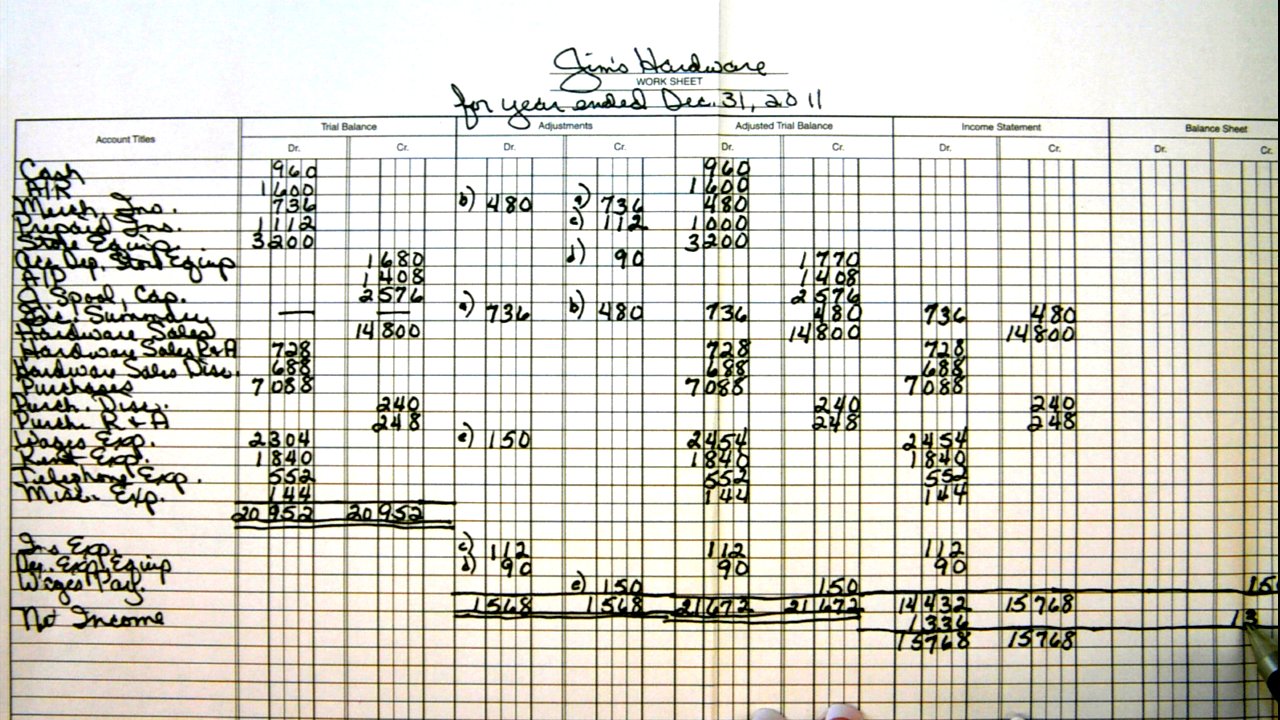 Jim's Hardware
WORK SHEET
for year ended Dec. 31, 2011
Account Titles Trial Balance Adjustments Adjusted Trial Balance Income Statement Balance Sheet
Dr. Cr. Dr. Cr. Dr. Cr. Dr. Cr. Dr. Cr.
Cash 960 960
A/R 1600 1600
Merch. Ins. 736 b) 480 a) 736 480
Prepaid Ins. 1112 c) 112 1000
Store Equip. 3200 3200
Acc. Dep. Store Equip 1680 d) 90 1770
A/P 1408 1408
D. Spool, Cap. 2576 2576
Inc. Summary — — a) 736 b) 480 736 480 736 480
Hardware Sales 14800 14800 14800
Hardware Sales R&A 728 728 728
Hardware Sales Disc. 688 688 688
Purchases 7088 7088 7088
Purch. Disc. 240 240 240
Purch. R&A 248 248 248
Wages Exp. 2304 e) 150 2454 2454
Rent Exp. 1840 1840 1840
Telephone Exp. 552 552 552
Misc. Exp. 144 144 144
20952 20952
Ins Exp. c) 112 112 112
Dep. Exp, Equip d) 90 90 90
Wages Pay. e) 150 150 15
1568 1568 21672 21672 14432 15768
Net Income 1336 13
15768 15768